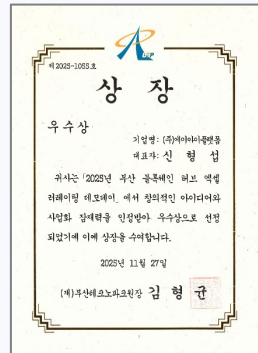 제 2025-1055호
상 장
우수상
기업명: (주)에이아이플랫폼
대표자: 신 형 섭
귀사는 「2025년 부산 블록체인 허브 엑셀
러레이팅 데모데이」에서 창의적인 아이디어와
사업화 잠재력을 인정받아 우수상으로 선정
되었기에 이에 상장을 수여합니다.
2025년 11월 27일
(재)부산테크노파크원장 김 형 균